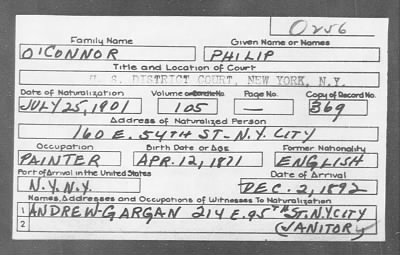 0256
Family Name Given Name or Names
O'CONNOR PHILIP
Title and Location of Court
U. S. DISTRICT COURT, NEW YORK, N.Y.
Date of Naturalization Volume or Bundle No. Page No. Copy of Record No.
JULY 25, 1901 105 — 369
Address of Naturalized Person
160 E. 54TH ST- N.Y. CITY
Occupation Birth Date or Age Former Nationality
PAINTER APR. 12, 1871 ENGLISH
Port of Arrival in the United States Date of Arrival
N.Y. N.Y. DEC. 2, 1892
Names, Addresses and Occupations of Witnesses To Naturalization
1 ANDREW GARGAN 214 E. 95TH ST. N.Y. CITY
2 (JANITOR)